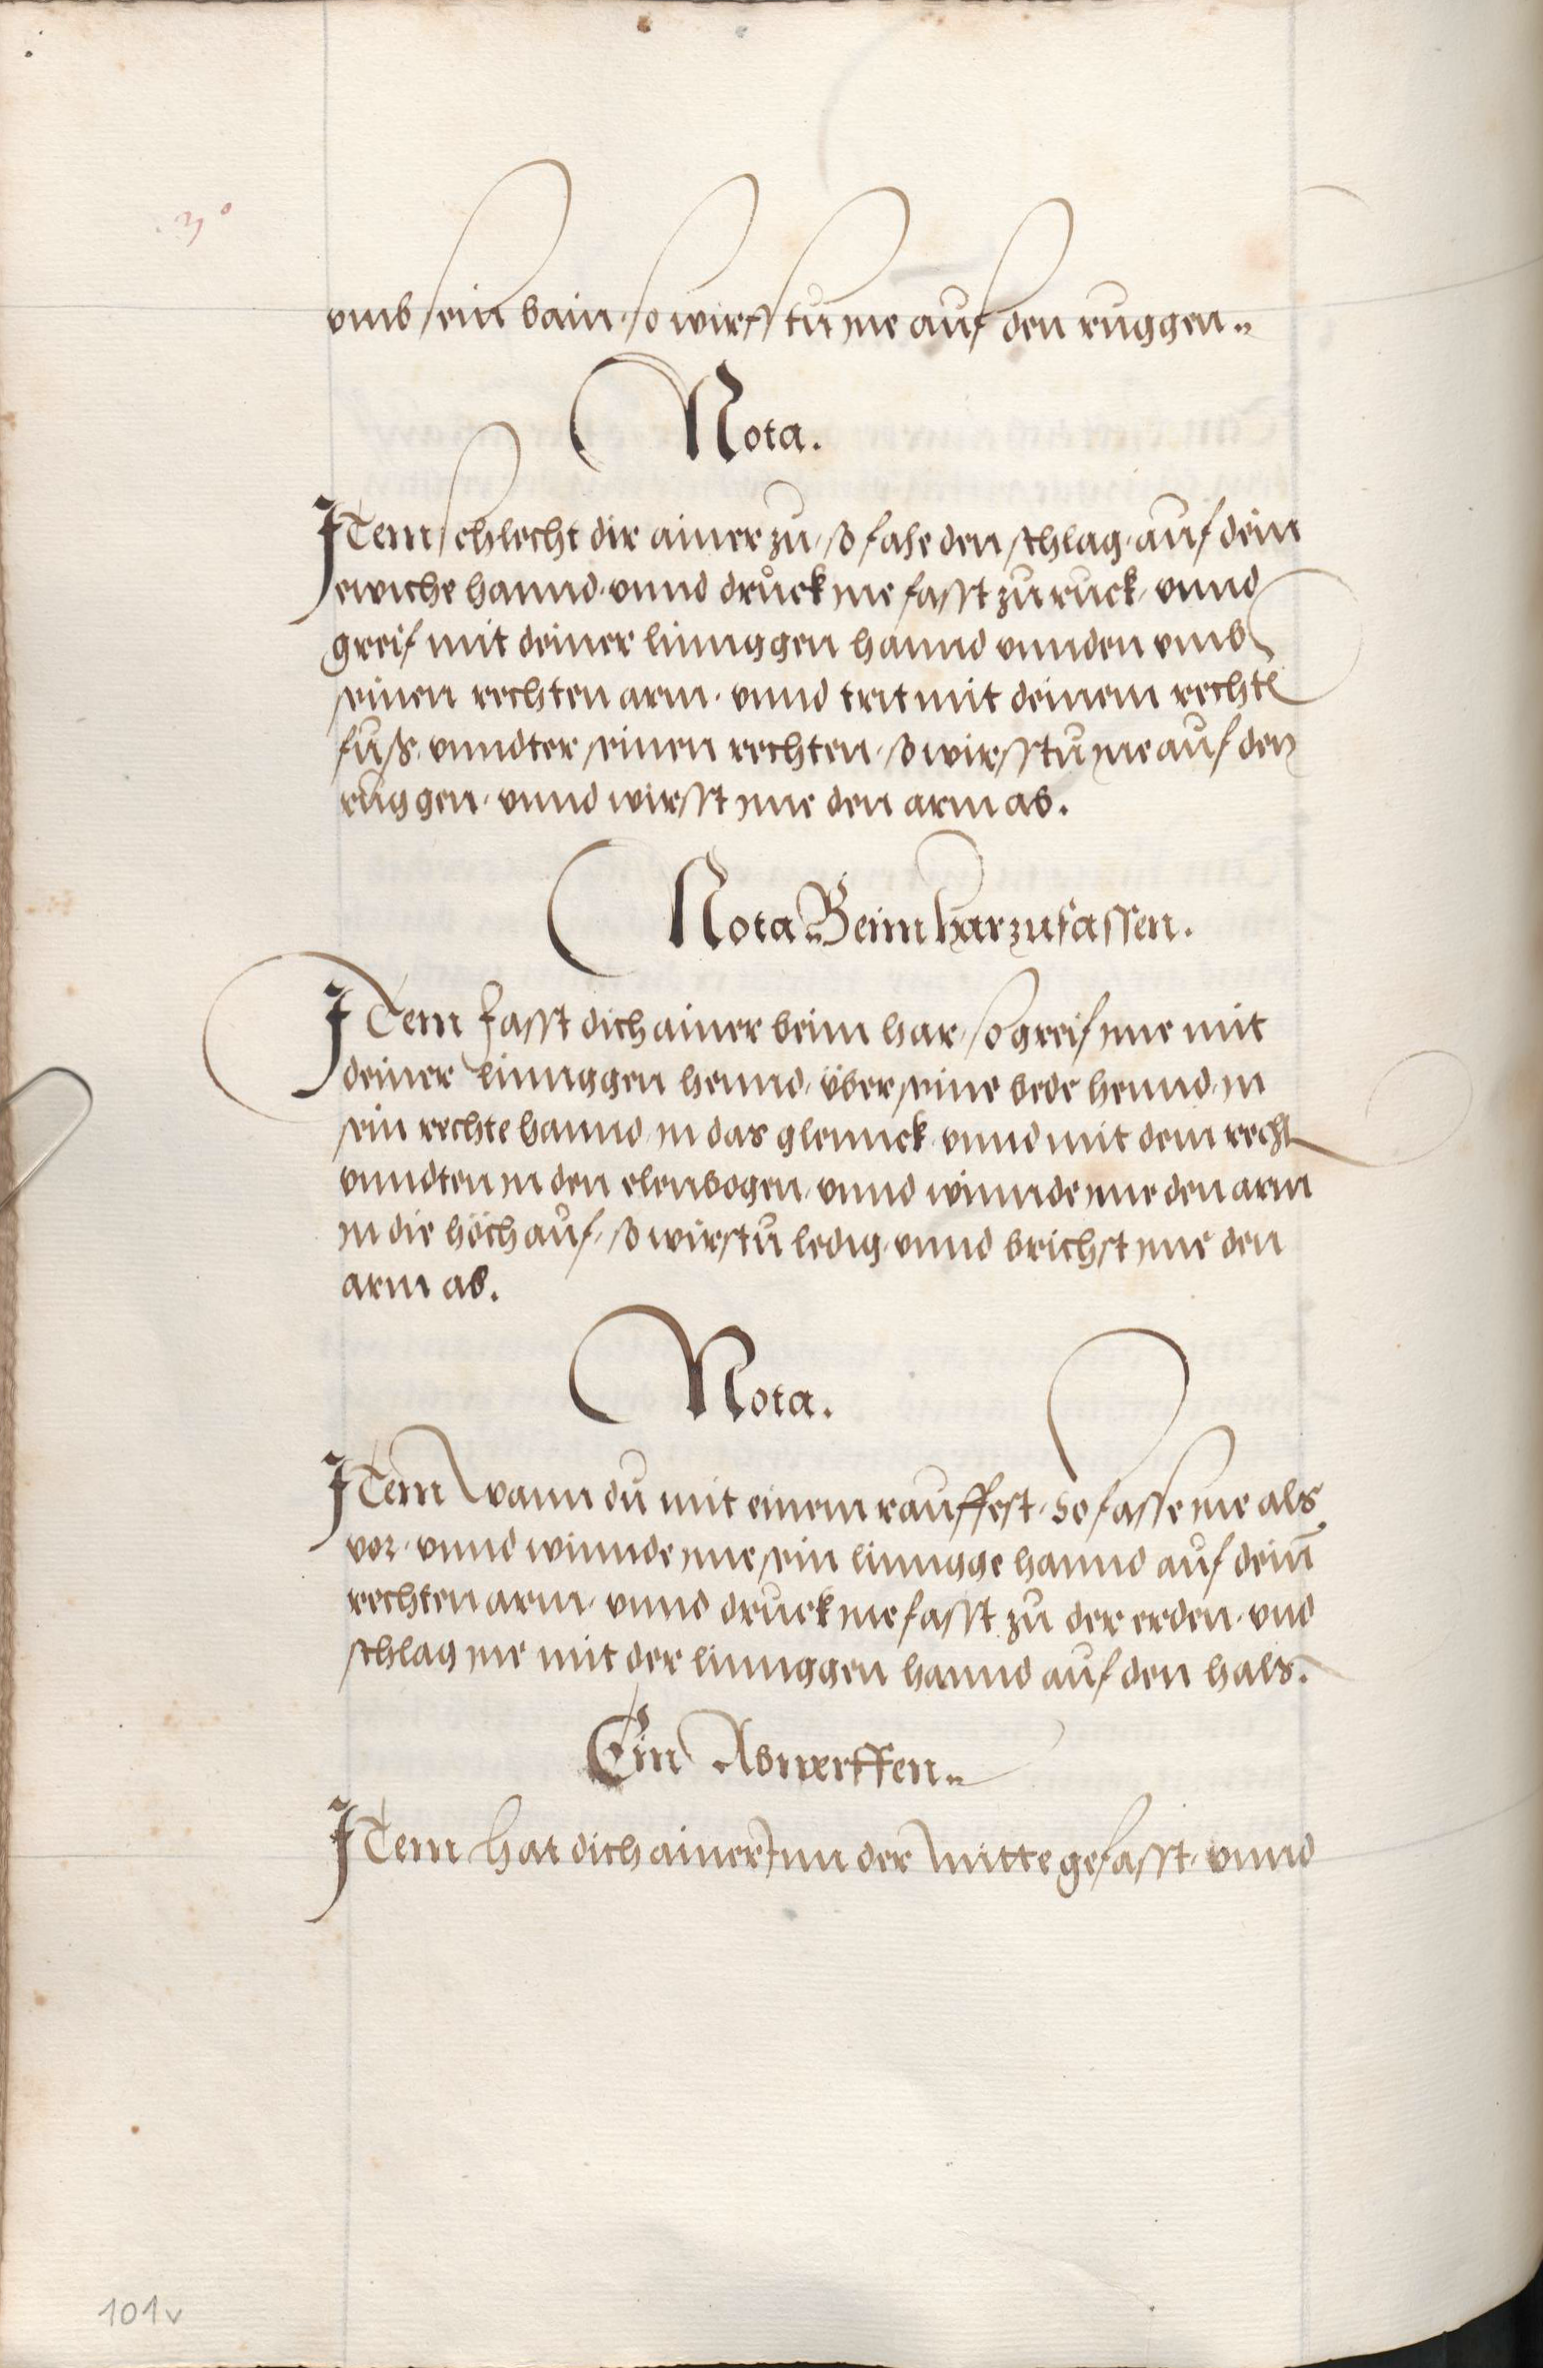 .3°
vmb sein bain, so wirfstu ine auf den ruggen..
Nota.
Item schlecht dir ainer zu, so fahe den schlag, auf dein
ewiche hannd, vnnd druck ine fasst zuruck, vnnd
greif mit deiner linnggen hannd vnnden vmb
seinen rechten arm, vnnd trit mit deinem rechtē
fuss, vnndter seinen rechten, so wirfstu ine auf den
ruggen, vnnd wirfst ime den arm ab.
Nota Beim har zufassen.
Item fasst dich ainer beim har, so greif ime mit
deiner linnggen hennd, über seine bede hennd, in
sein rechte hannd, in das glennck, vnnd mit dem recht
vnndten in den elenbogen, vnnd winnde ime den arm
in die höch auf, so würstu ledig, vnnd brichst ime den
arm ab.
Nota.
Item wann du mit einem rauffest, So fasse ine als
vor, vnnd winnde ime sein linngge hannd auf deinn̄
rechten arm, vnnd druck ine fasst zu der erden, vnd
schlag ine mit der linnggen hannd auf den hals.
Ein Abwerffen..
Item hat dich ainer inn der mitte gefasst, vnnd
101v